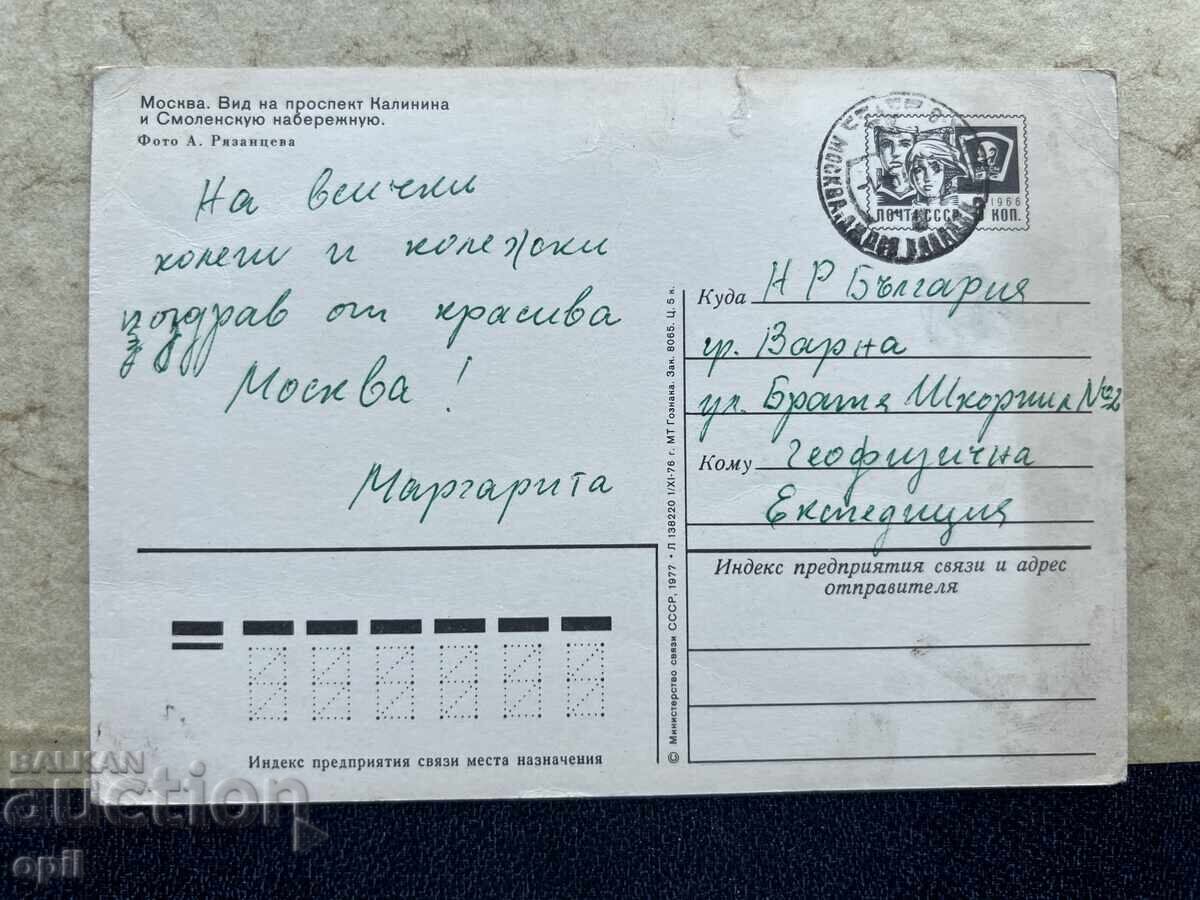 Москва. Вид на проспект Калинина
и Смоленскую набережную.
Фото А. Рязанцева
На всички
колеги и колежки
поздрав от красива
Москва!
Маргарита
МОСКВА
ПОЧТА СССР
1966
КОП.
Куда Н Р България
гр. Варна
ул. Братя Шкорпил №2
Кому Геофизична
Експедиция
Индекс предприятия связи и адрес
отправителя
Индекс предприятия связи места назначения
© Министерство связи СССР, 1977 • Л 138220 1/XI-76 г. МТ Гознака. Зак. 8065. Ц. 5 к.
BALKAN
auction
opil